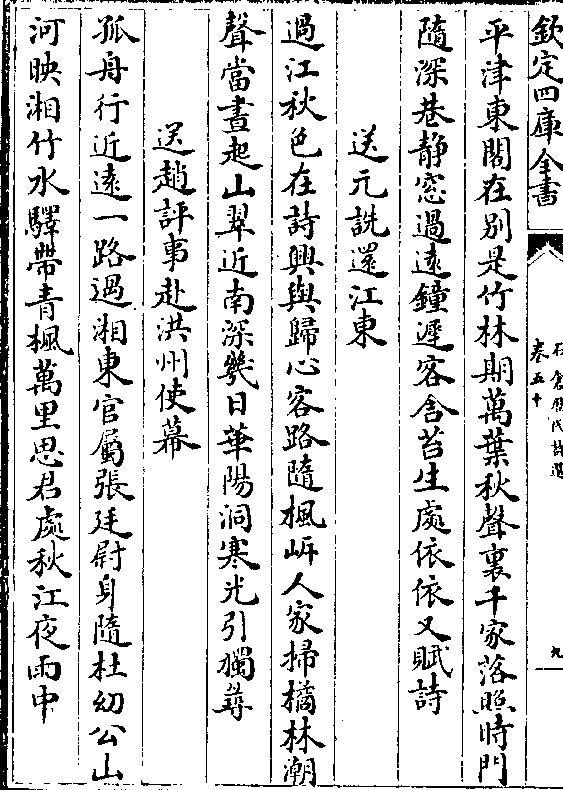 欽定四庫全書
石倉歷代詩選
卷五十
九
平津東閣在别是竹林期萬葉秋聲裏千家落照時門
隨深巷静窓過遠鐘遲客舍苔生處依依又賦詩
送元詵還江東
過江秋色在詩興與歸心客路隨楓岍人家掃橘林潮
聲當晝起山翠近南深幾日華陽洞寒光引獨尋
送趙評事赴洪州使幕
孤舟行近遠一路過湘東官屬張廷尉身隨杜幼公山
河映湘竹水驛帶青楓萬里思君處秋江夜雨中